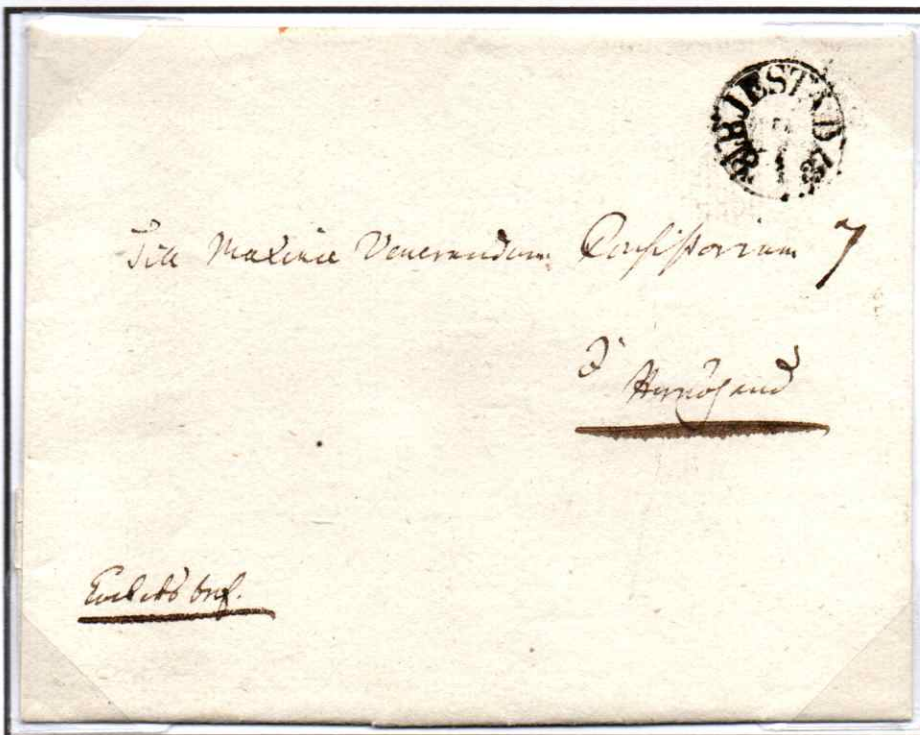 Till Maxime Venerandum Consistorium 7
I
Hernösand
Enskilt bref.